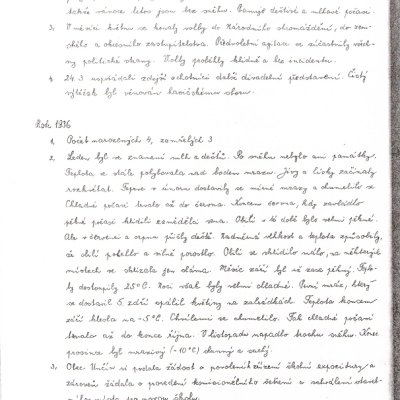 takže vánoce letos jsou bez sněhu. Panuje deštivé a mlhavé počasí.
3. V měsíci květnu se konaly volby do Národního shromáždění, do zem-
ského a okresního zastupitelstva. Předvolební agitace se zúčastnily všech-
ny politické strany. Volby proběhly klidně a bez incidentu.
4. 24.3 uspořádali zdejší ochotníci další divadelní představení. Čistý
výtěžek byl věnován hasičskému sboru.
Rok 1936
1. Počet narozených 4, zemřelých 3
2. Leden byl ve znamení mlh a dešťů. Po sněhu nebylo ani památky.
Teplota se stále pohybovala nad bodem mrazu. Jívy a lísky začínaly
rozkvétat. Teprve v únoru dostavily se mírné mrazy a chumelilo se.
Chladné počasí trvalo až do června. Koncem června, kdy zavládlo
pěkné počasí klidili zemědělci sena. Obilí v té době bylo velmi pěkné.
Ale v červenci a srpnu přišly deště. Nadměrná vlhkost a teplota způsobily,
že obilí polehlo a silně porostlo. Obilí se sklidilo málo, na některých
místech se sklízela jen sláma. Měsíc září byl již zase pěkný. Teplo-
ty dostoupily 25°C. Noci však byly velmi chladné. První mráz, který
se dostavil 5. září spálil květiny na zahrádkách. Teplota koncem
září klesla na -5°C. Chvílemi se chumelilo. Tak chladné počasí
trvalo až do konce října. V listopadu napadlo trochu sněhu. Konec
prosince byl mrazivý (-10°C) slunný a suchý.
3. Obec Unčín si podala žádost o povolení zřízení školní expositury a
zároveň žádala o provedení komisionelního šetření a schválení staveb-
ního místa pro novou školu.